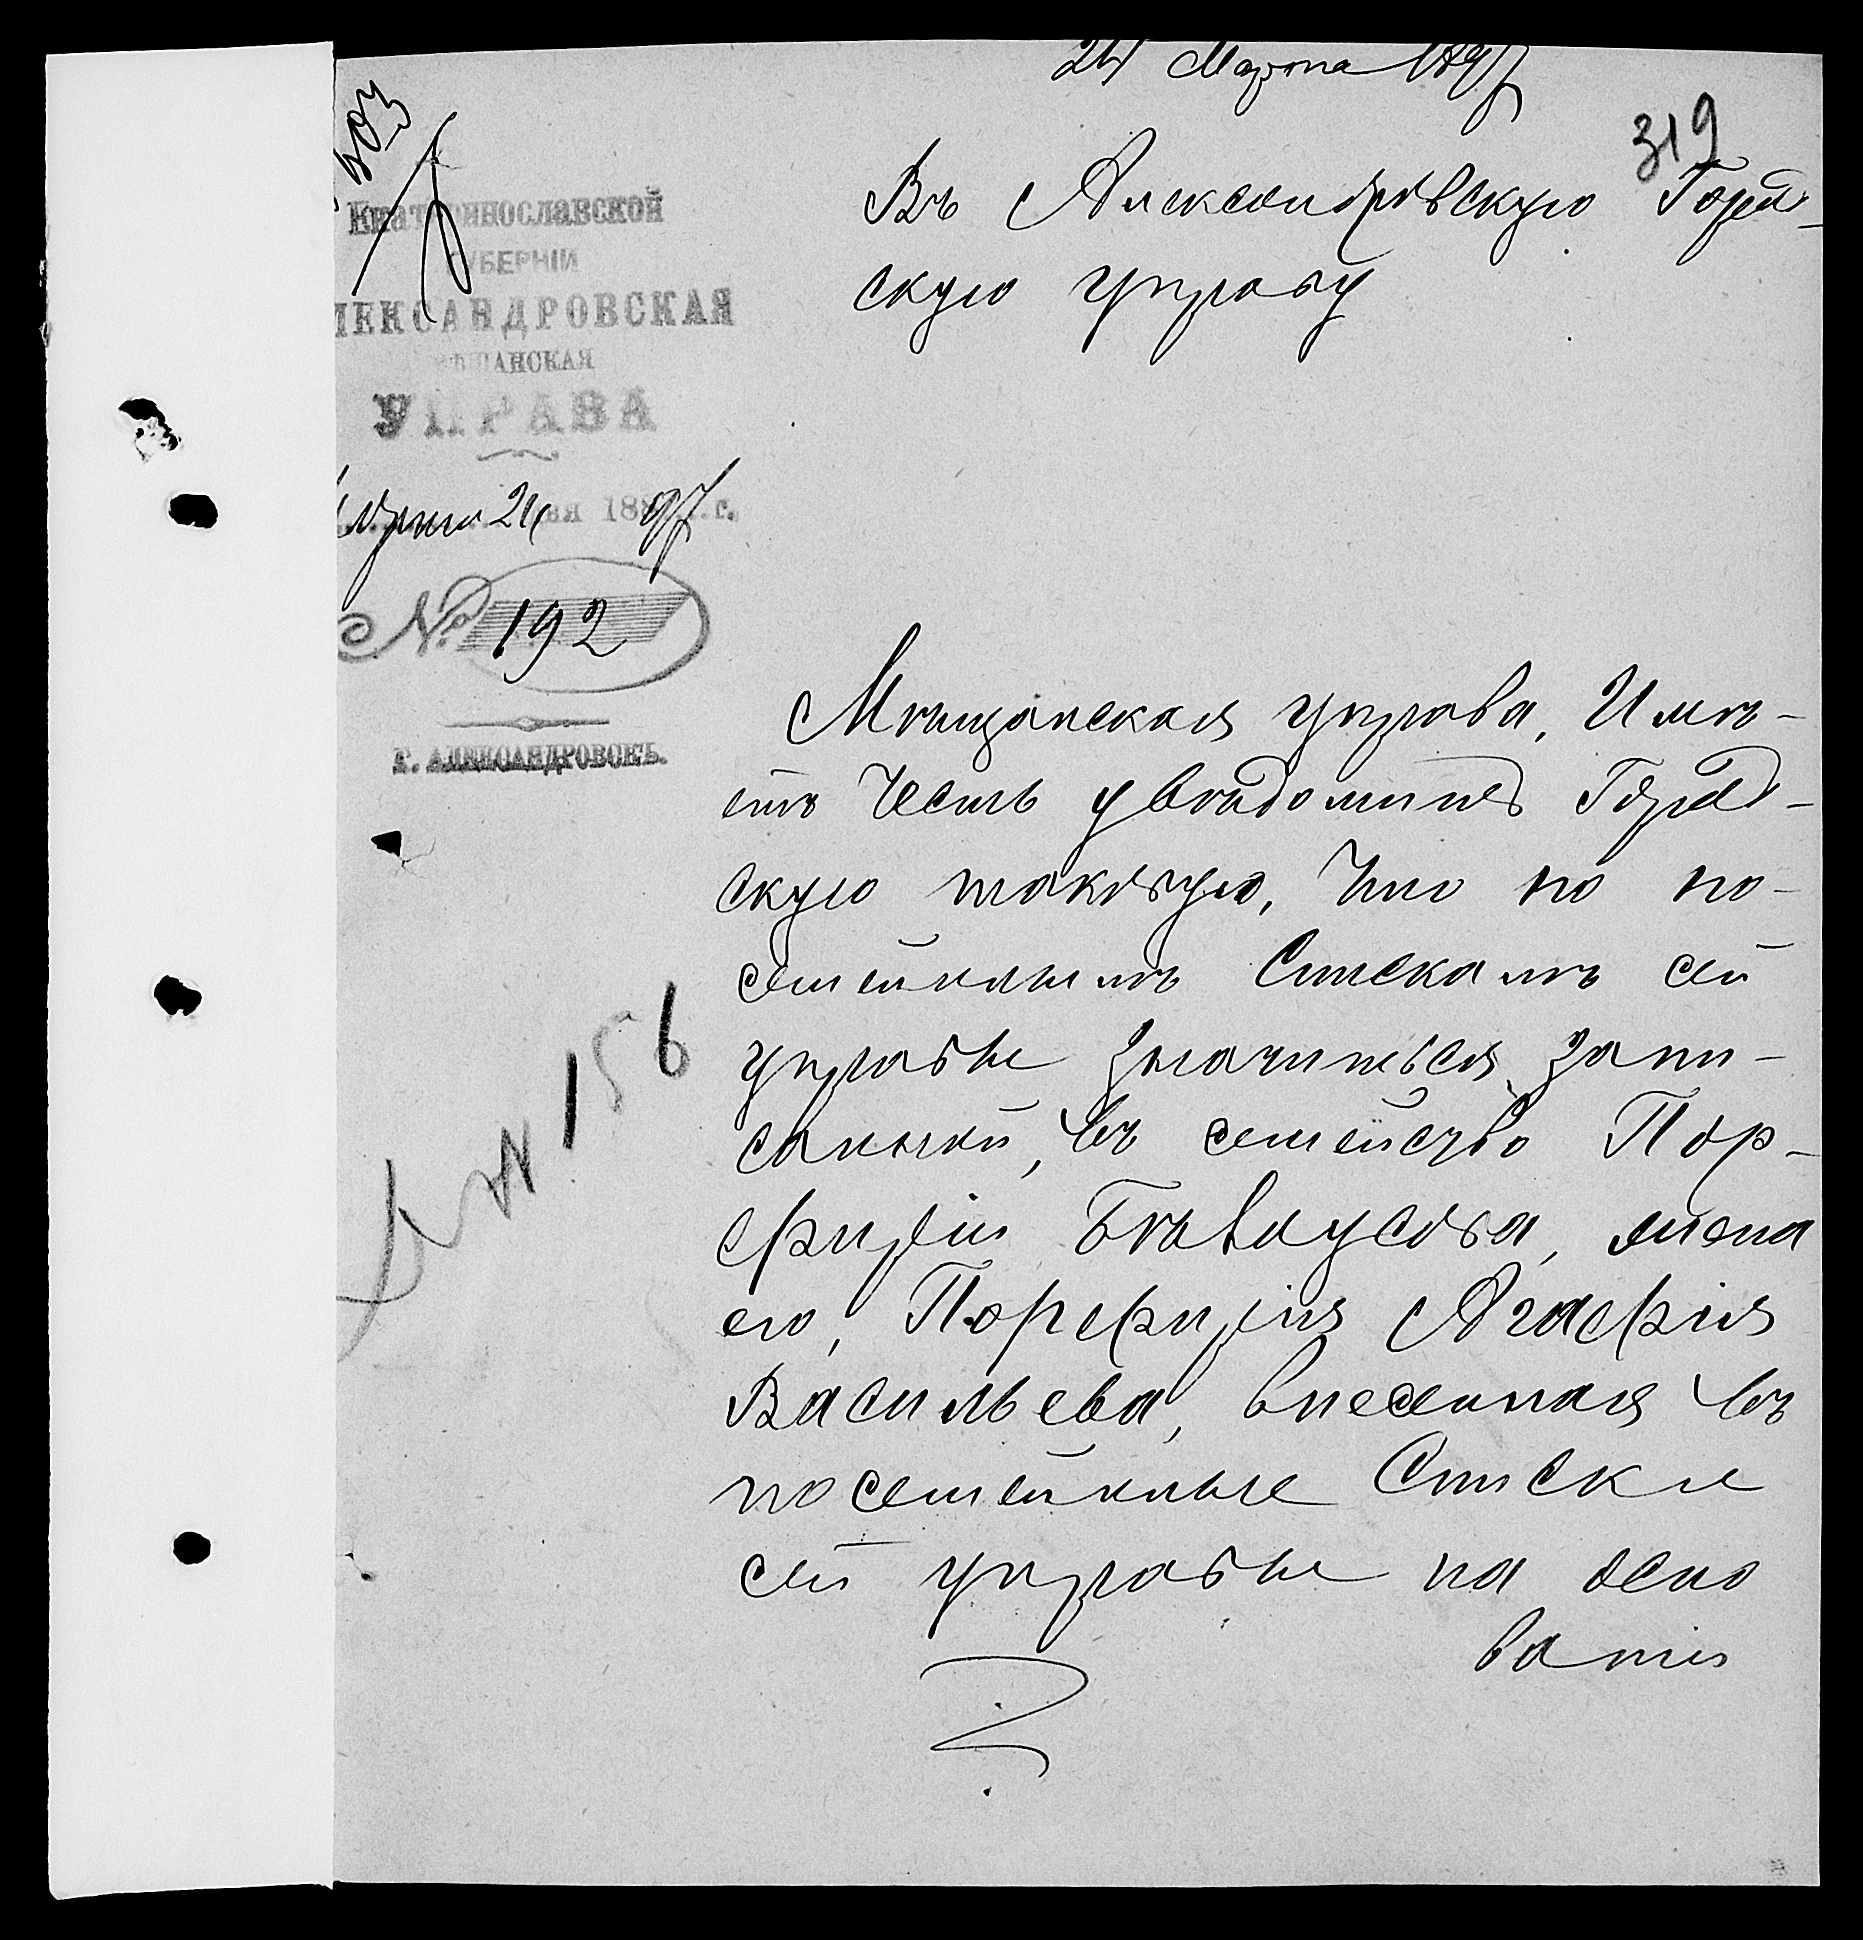 24 Марта 1897
319
503
Екатеринославской
ГУБЕРНІИ
ЛЕКСАНДРОВСКАЯ
МѢЩАНСКАЯ
УПРАВА
Марта 24 дня 1897 г.
№ 192
Г. АЛЕКСАНДРОВСКЪ.
№ 156
Въ Александровскую Город-
скую управу
Мѣщанская управа, Имѣ-
етъ Честь увѣдомить Город-
скую таковую, Что по по-
семейнымъ Спискамъ сей
управы значиться запи-
санной, въ семейство Пор-
фирія Бѣлоусова, жена
его, Порфирія Агафія
Васильева, внесенная въ
посемейные Списки
сей управы на осно
ваніи